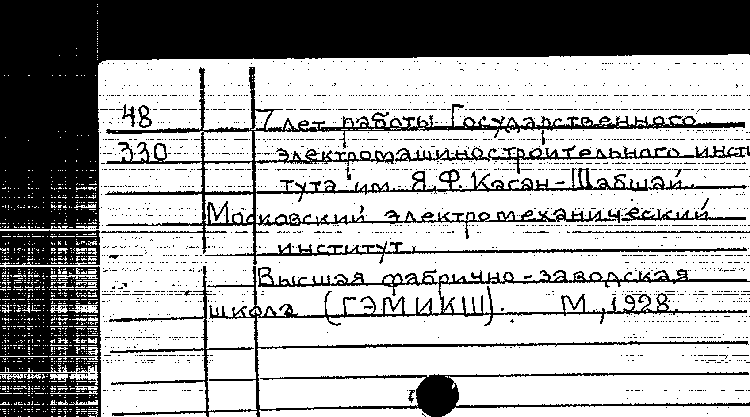 48 7 лет работы Государственного
330 электромашиностроительного инсти
тута им. Я.Ф. Касан-Шабшай.
Московский электромеханический
институт.
Высшая фабрично-заводская
школа (ГЭМИКШ). М., 1928.